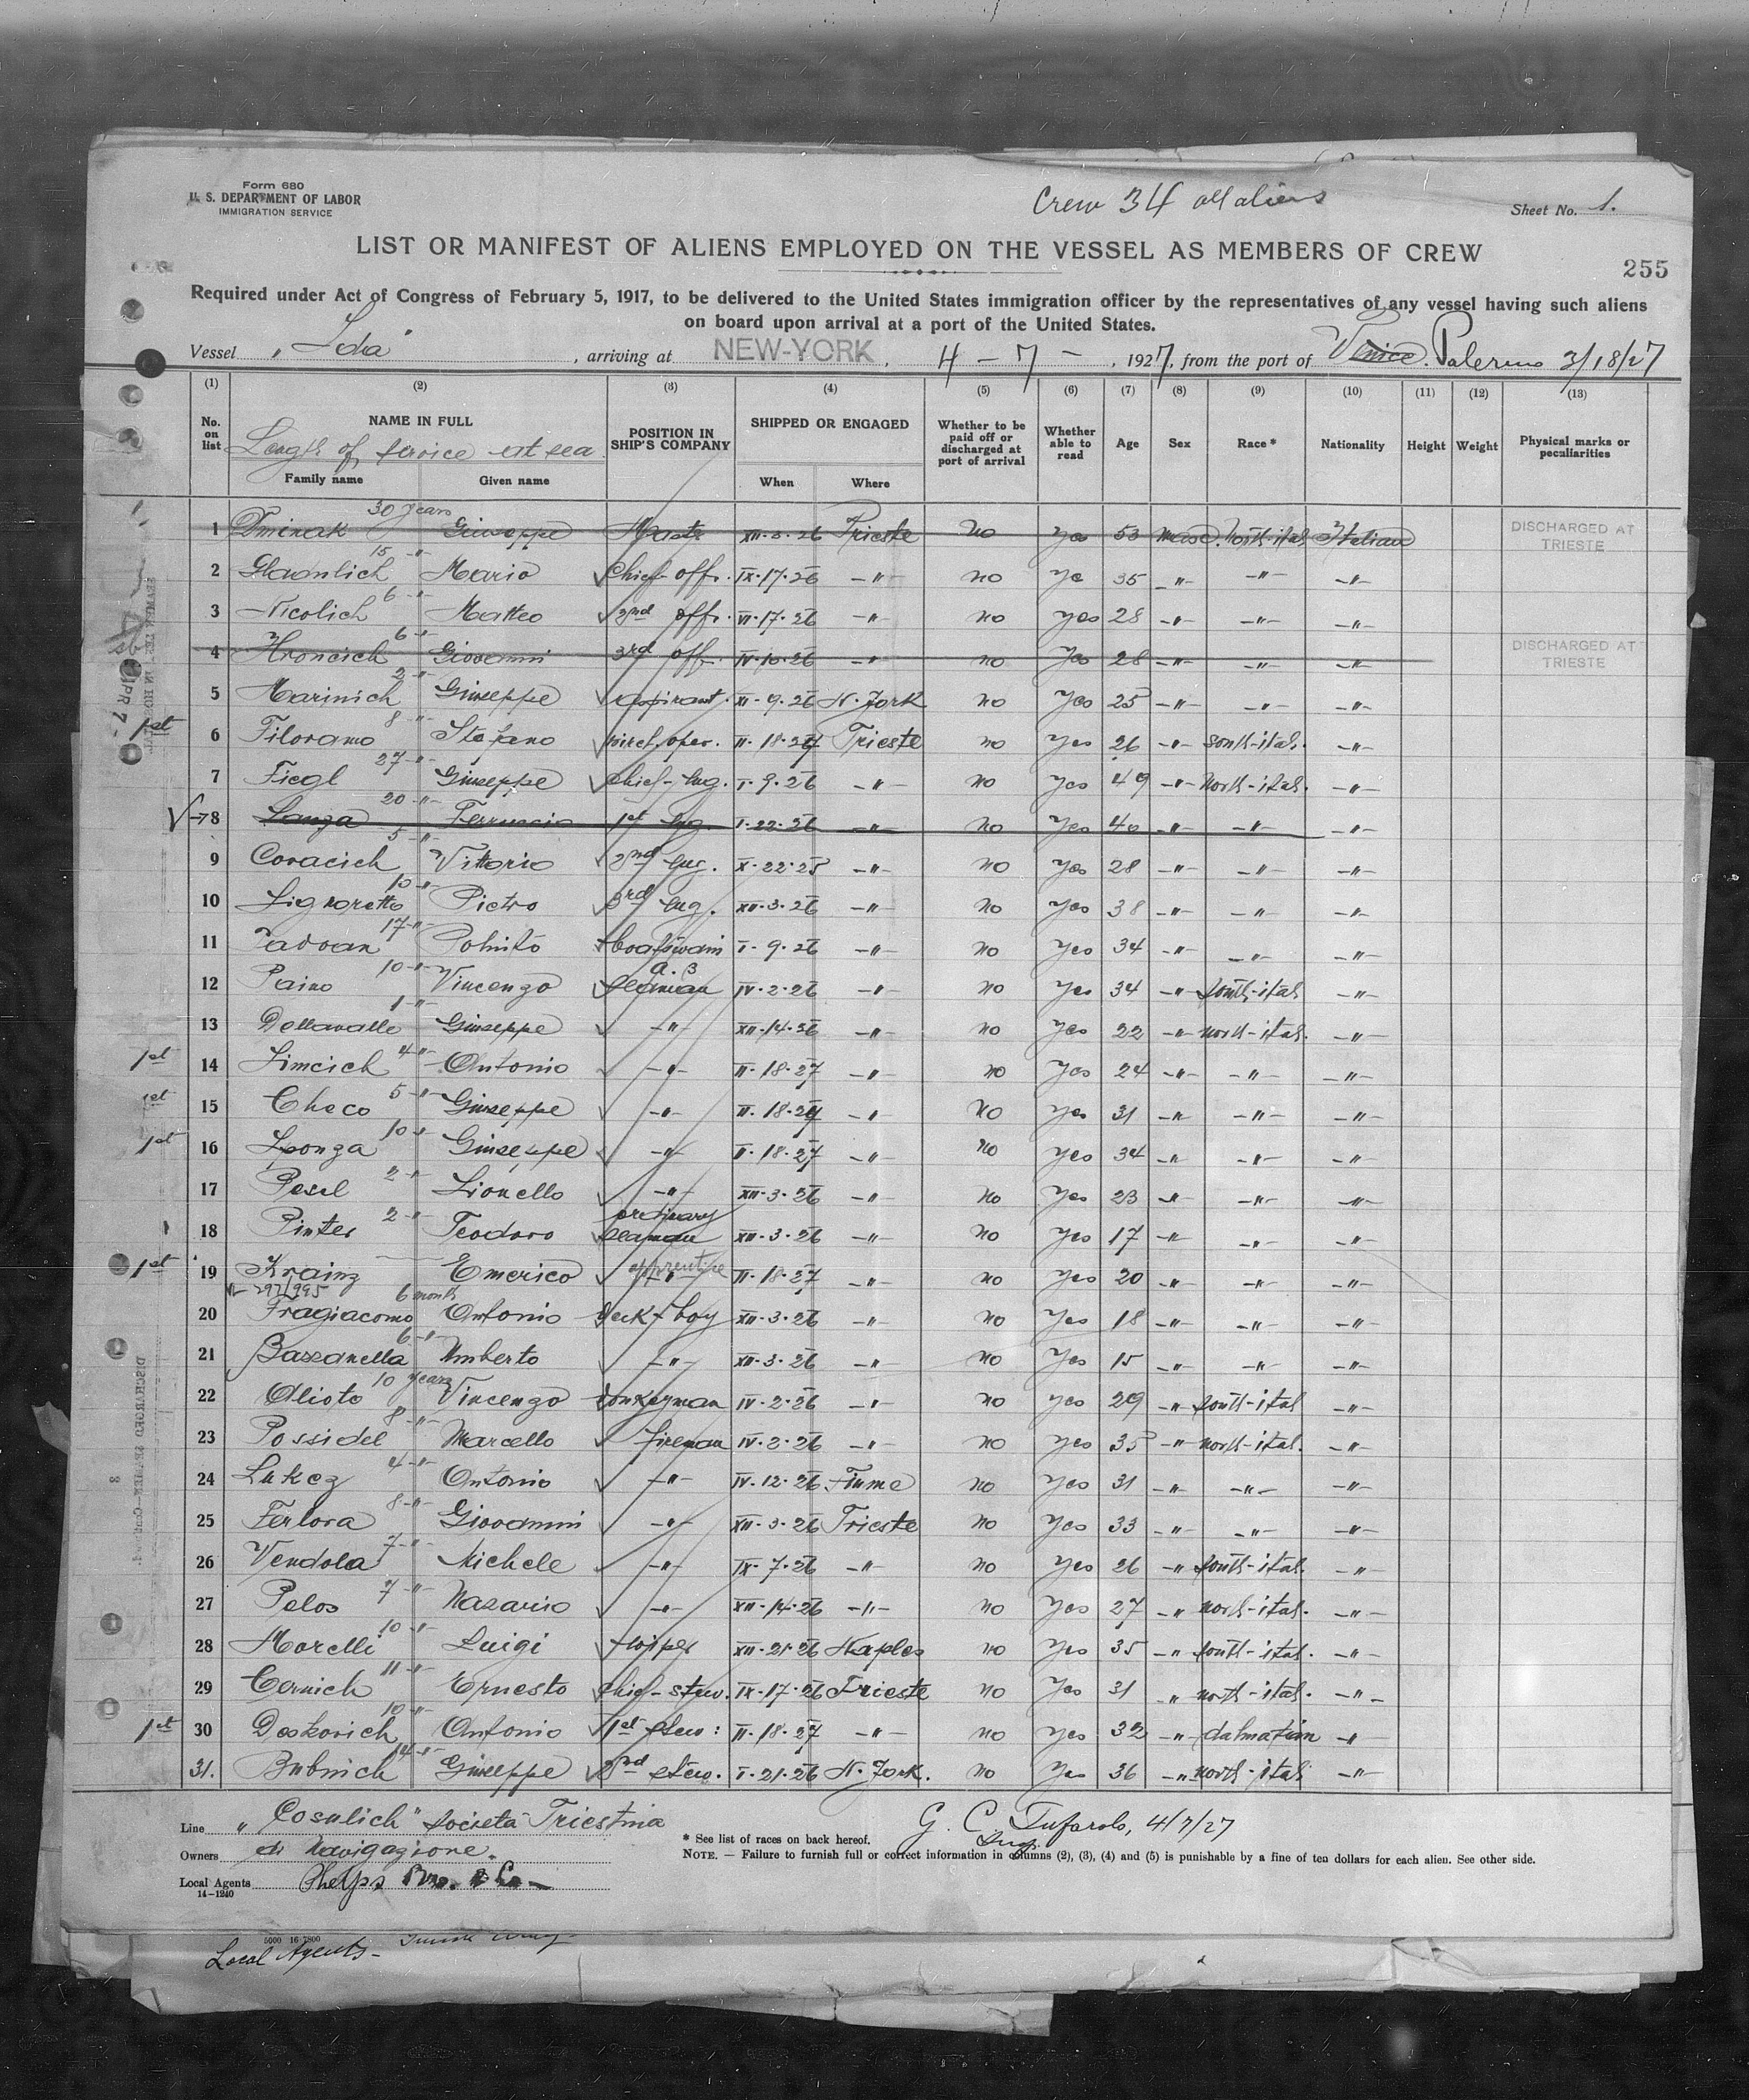 Form 680
U. S. DEPARTMENT OF LABOR
IMMIGRATION SERVICE
Crew 34 all aliens
Sheet No. 1.
LIST OR MANIFEST OF ALIENS EMPLOYED ON THE VESSEL AS MEMBERS OF CREW
255
Required under Act of Congress of February 5, 1917, to be delivered to the United States immigration officer by the representatives of any vessel having such aliens
on board upon arrival at a port of the United States.
Vessel , arriving at NEW-YORK, 4 - 7 - , 1927, from the port of Venice. Palermo 3/18/27
(1) (2) (3) (4) (5) (6) (7) (8) (9) (10) (11) (12) (13)
No. on list NAME IN FULL POSITION IN SHIP'S COMPANY SHIPPED OR ENGAGED Whether to be paid off or discharged at port of arrival Whether able to read Age Sex Race * Nationality Height Weight Physical marks or peculiarities
Length of service at sea
Family name Given name When Where
1 30 years Giuseppe XII-3-26 Trieste No Yes 53 Masc. North-ital. Italian DISCHARGED AT TRIESTE
2 15 -"- Mario Chief off. IX-17-26 -"- no Ye 35 -"- -"- -"-
3 Nicolich 6 -"- Matteo 2nd off. VI-17-26 -"- no yes 28 -"- -"- -"-
4 Hroncich 6 -"- Giovanni 3rd off. IV-10-26 -"- no Yes 28 -"- -"- -"- DISCHARGED AT TRIESTE
5 Marinich 2 -"- Giuseppe aspirant. XI-9-26 N. York no Yes 25 -"- -"- -"-
1st 6 Filoramo 8 -"- Stefano oper. II-18-27 Trieste no Yes 26 -"- south-ital. -"-
7 Fiegl 27 -"- Giuseppe chief-eng. I-9-26 -"- no Yes 49 -"- North-ital. -"-
8 Lanza 20 -"- Ferruccio 1st eng. I-22-26 -"- No Yes 40 -"- -"- -"-
9 Covacich 5 -"- Vittorio 2nd eng. X-22-25 -"- no Yes 28 -"- -"- -"-
10 Signoretto 10 -"- Pietro 3rd eng. XII-3-26 -"- No Yes 38 -"- -"- -"-
11 Padoan 17 -"- boatswain I-9-26 -"- no Yes 34 -"- -"- -"-
12 Paino 10 -"- Vincenzo a.B seaman IV-2-26 -"- no Yes 34 -"- south-ital -"-
13 Dellavalle 1 -"- Giuseppe -"- XII-14-26 -"- no Yes 22 -"- north-ital. -"-
1st 14 Simcich 4 -"- Antonio -"- II-18-27 -"- no Yes 24 -"- -"- -"-
1st 15 Checo 5 -"- Giuseppe -"- II-18-27 -"- No Yes 31 -"- -"- -"-
1st 16 Sponza 10 -"- Giuseppe -"- II-18-27 -"- No yes 34 -"- -"- -"-
17 Pesel 2 -"- Lionello -"- XII-3-26 -"- No Yes 23 -"- -"- -"-
18 Pinter 2 -"- Teodoro ordinary seaman XII-3-26 -"- No Yes 17 -"- -"- -"-
1st 19 Krainz Emerico apprentice II-18-27 -"- no Yes 20 -"- -"- -"-
20 Fragiacomo 6 month Antonio deck-boy XII-3-26 -"- no Yes 18 -"- -"- -"-
21 Bassanella 6 -"- Umberto -"- XII-3-26 -"- no Yes 15 -"- -"- -"-
22 Alioto 10 years Vincenzo donkeyman IV-2-26 -"- no yes 29 -"- south-ital -"-
23 Possidel 8 -"- Marcello fireman IV-2-26 -"- no Yes 35 -"- north-ital. -"-
24 Lukez 4 -"- Antonio -"- IV-12-26 Fiume no Yes 31 -"- -"- -"-
25 Ferlora 8 -"- Giovanni -"- XII-3-26 Trieste no Yes 33 -"- -"- -"-
26 Vendola 7 -"- Michele -"- IX-7-26 -"- no Yes 26 -"- south-ital. -"-
27 Pelos 7 -"- Nazario -"- XII-14-26 -"- no Yes 27 -"- north-ital. -"-
28 Morelli 10 -"- Luigi wiper XII-21-26 Naples no Yes 35 -"- south-ital. -"-
29 Cernich 11 -"- Ernesto Chief-stew. IX-17-26 Trieste no Yes 31 -"- north-ital. -"-
1st 30 Deskovich 10 -"- Antonio 1st stew: II-18-27 -"- no Yes 32 -"- dalmatian -"-
31. Bubnich 14 -"- Giuseppe 2nd stew. I-21-26 N. York. no Yes 36 -"- north-ital -"-
Line "Cosulich" Società Triestina
Owners di Navigazione.
Local Agents Phelps Bro. & Co -
14-1240
* See list of races on back hereof.
4/7/27
NOTE. — Failure to furnish full or correct information in columns (2), (3), (4) and (5) is punishable by a fine of ten dollars for each alien. See other side.
Local Agents -